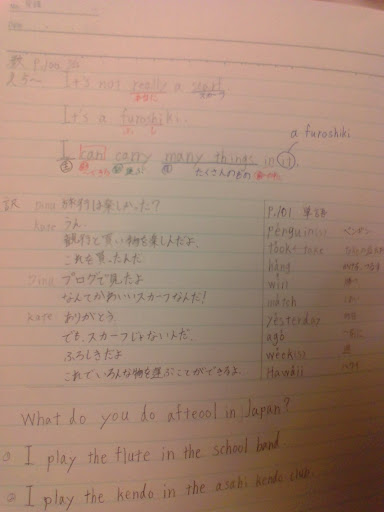 It's not really a scarf.
本当に スカーフ
It's a furoshiki.
a furoshiki
I can carry many things in it.
たくさんのもの
訳 Dina 旅行は楽しかった?
Kate うん。
観光と買い物を楽しんだよ。
これを買ったんだ
Dina ブログで見たよ
なんてかわいいスカーフなんだ!
Kate ありがとう。
でも、スカーフじゃないんだ。
ふろしきだよ
これでいろんな物を運ぶことができるよ。
P.101 単語
penguin(s) ペンギン
took←take
hang
win 勝つ
match
yesterday
ago
week(s) 週
Hawaii ハワイ
What do you do afteool in Japan?
① I play the flute in the school band.
② I play the kendo in the asahi kendo club.